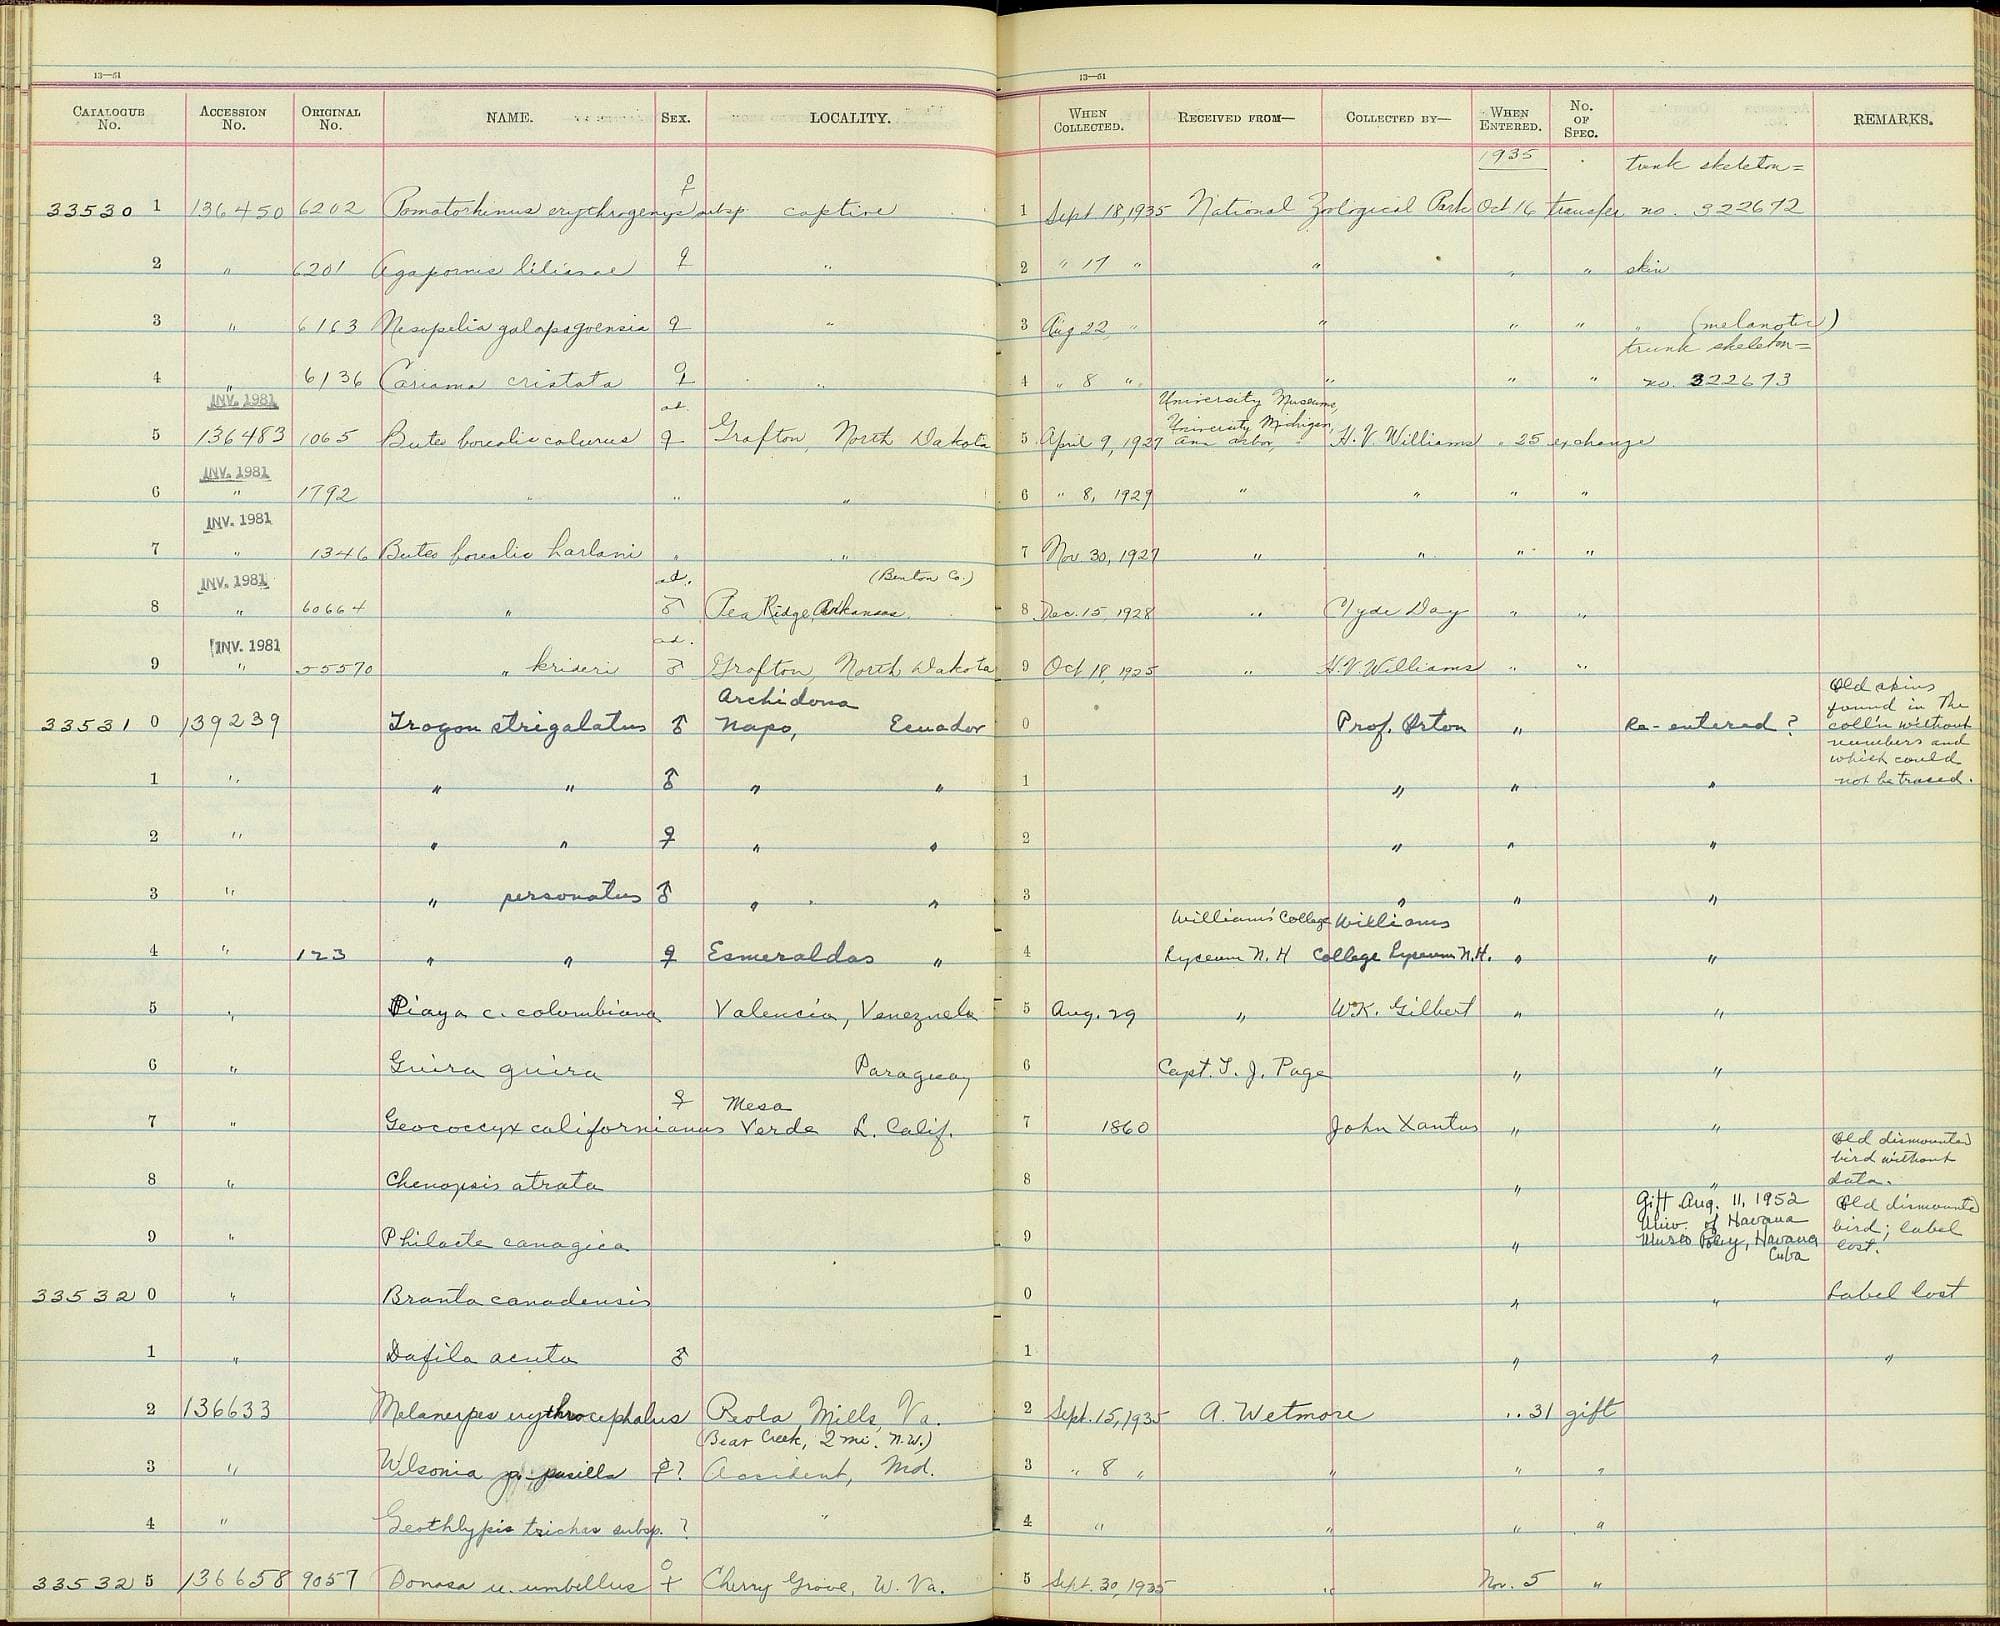 13—51
13—51
CATALOGUE No. ACCESSION No. ORIGINAL No. NAME. SEX. LOCALITY. WHEN COLLECTED. RECEIVED FROM— COLLECTED BY— WHEN ENTERED. No. OF SPEC. REMARKS.
1935 trunk skeleton=
33530 1 136450 6202 Pomatorhinus erythrogenys subsp. ♀ captive 1 Sept 18, 1935 National Zoological Park Oct 16 transfer no. 322672
2 " 6201 Agapornis lilianae ♀ " 2 " 17 " " " " skin
3 " 6163 Nesopelia galapagoensis ♀ " 3 Aug 22, " " " " " (melanotic)
trunk skeleton=
4 " 6136 Cariama cristata ♀ " 4 " 8 " " " " no. 322673
INV. 1981 ad. University Museums,
University Michigan,
5 136483 1065 Buteo borealis calurus ♀ Grafton, North Dakota 5 April 9, 1927 Ann Arbor, H.V. Williams " 25 exchange
INV. 1981
6 " 1792 " " " 6 " 8, 1929 " " " "
INV. 1981
7 " 1346 Buteo borealis harlani " " 7 Nov. 30, 1927 " " " "
INV. 1981 ad. (Benton Co.)
8 " 60664 " ♂ Pea Ridge, Arkansas. 8 Dec. 15, 1928 " Clyde Day " "
INV. 1981 ad.
9 " 55570 " krideri ♂ Grafton, North Dakota 9 Oct 18, 1925 " H.V. Williams " "
Archidona Old skins
found in the
33531 0 139239 Trogon strigalatus ♂ Napo, Ecuador 0 Prof. Orton " Re-entered? coll'n without
numbers and
which could
1 " " " ♂ " " 1 " " " not be traced.
2 " " " ♀ " " 2 " " "
3 " " personatus ♂ " " 3 " " "
Williams' College Williams
4 " 123 " " ♀ Esmeraldas " 4 Lyceum N.H College Lyceum N.H. " "
5 " Piaya c. columbiana Valencia, Venezuela 5 Aug. 29 " W.K. Gilbert " "
6 " Guira guira Paraguay 6 Capt. T. J. Page " "
♀ Mesa
7 " Geococcyx californianus Verde L. Calif. 7 1860 John Xantus " "
Old dismounted
bird without
8 " Chenopsis atrata 8 " " data.
Gift Aug. 11, 1952 Old dismounted
Univ. of Havana bird; label
9 " Philacte canagica 9 " Museo Poey, Havana lost.
Cuba
33532 0 " Branta canadensis 0 " " Label lost
1 " Dafila acuta ♂ 1 " " "
2 136633 Melanerpes erythrocephalus Reola Mills, Va. 2 Sept. 15, 1935 A. Wetmore " 31 gift
(Bear Creek, 2 mi. N.W.)
3 " Wilsonia p. pusilla ♀? Accident, Md. 3 " 8 " " " "
4 " Geothlypis trichas subsp. ? " 4 " " " "
33532 5 136658 9057 Bonasa u. umbellus ♀ Cherry Grove, W. Va. 5 Sept. 30, 1935 " Nov. 5 "